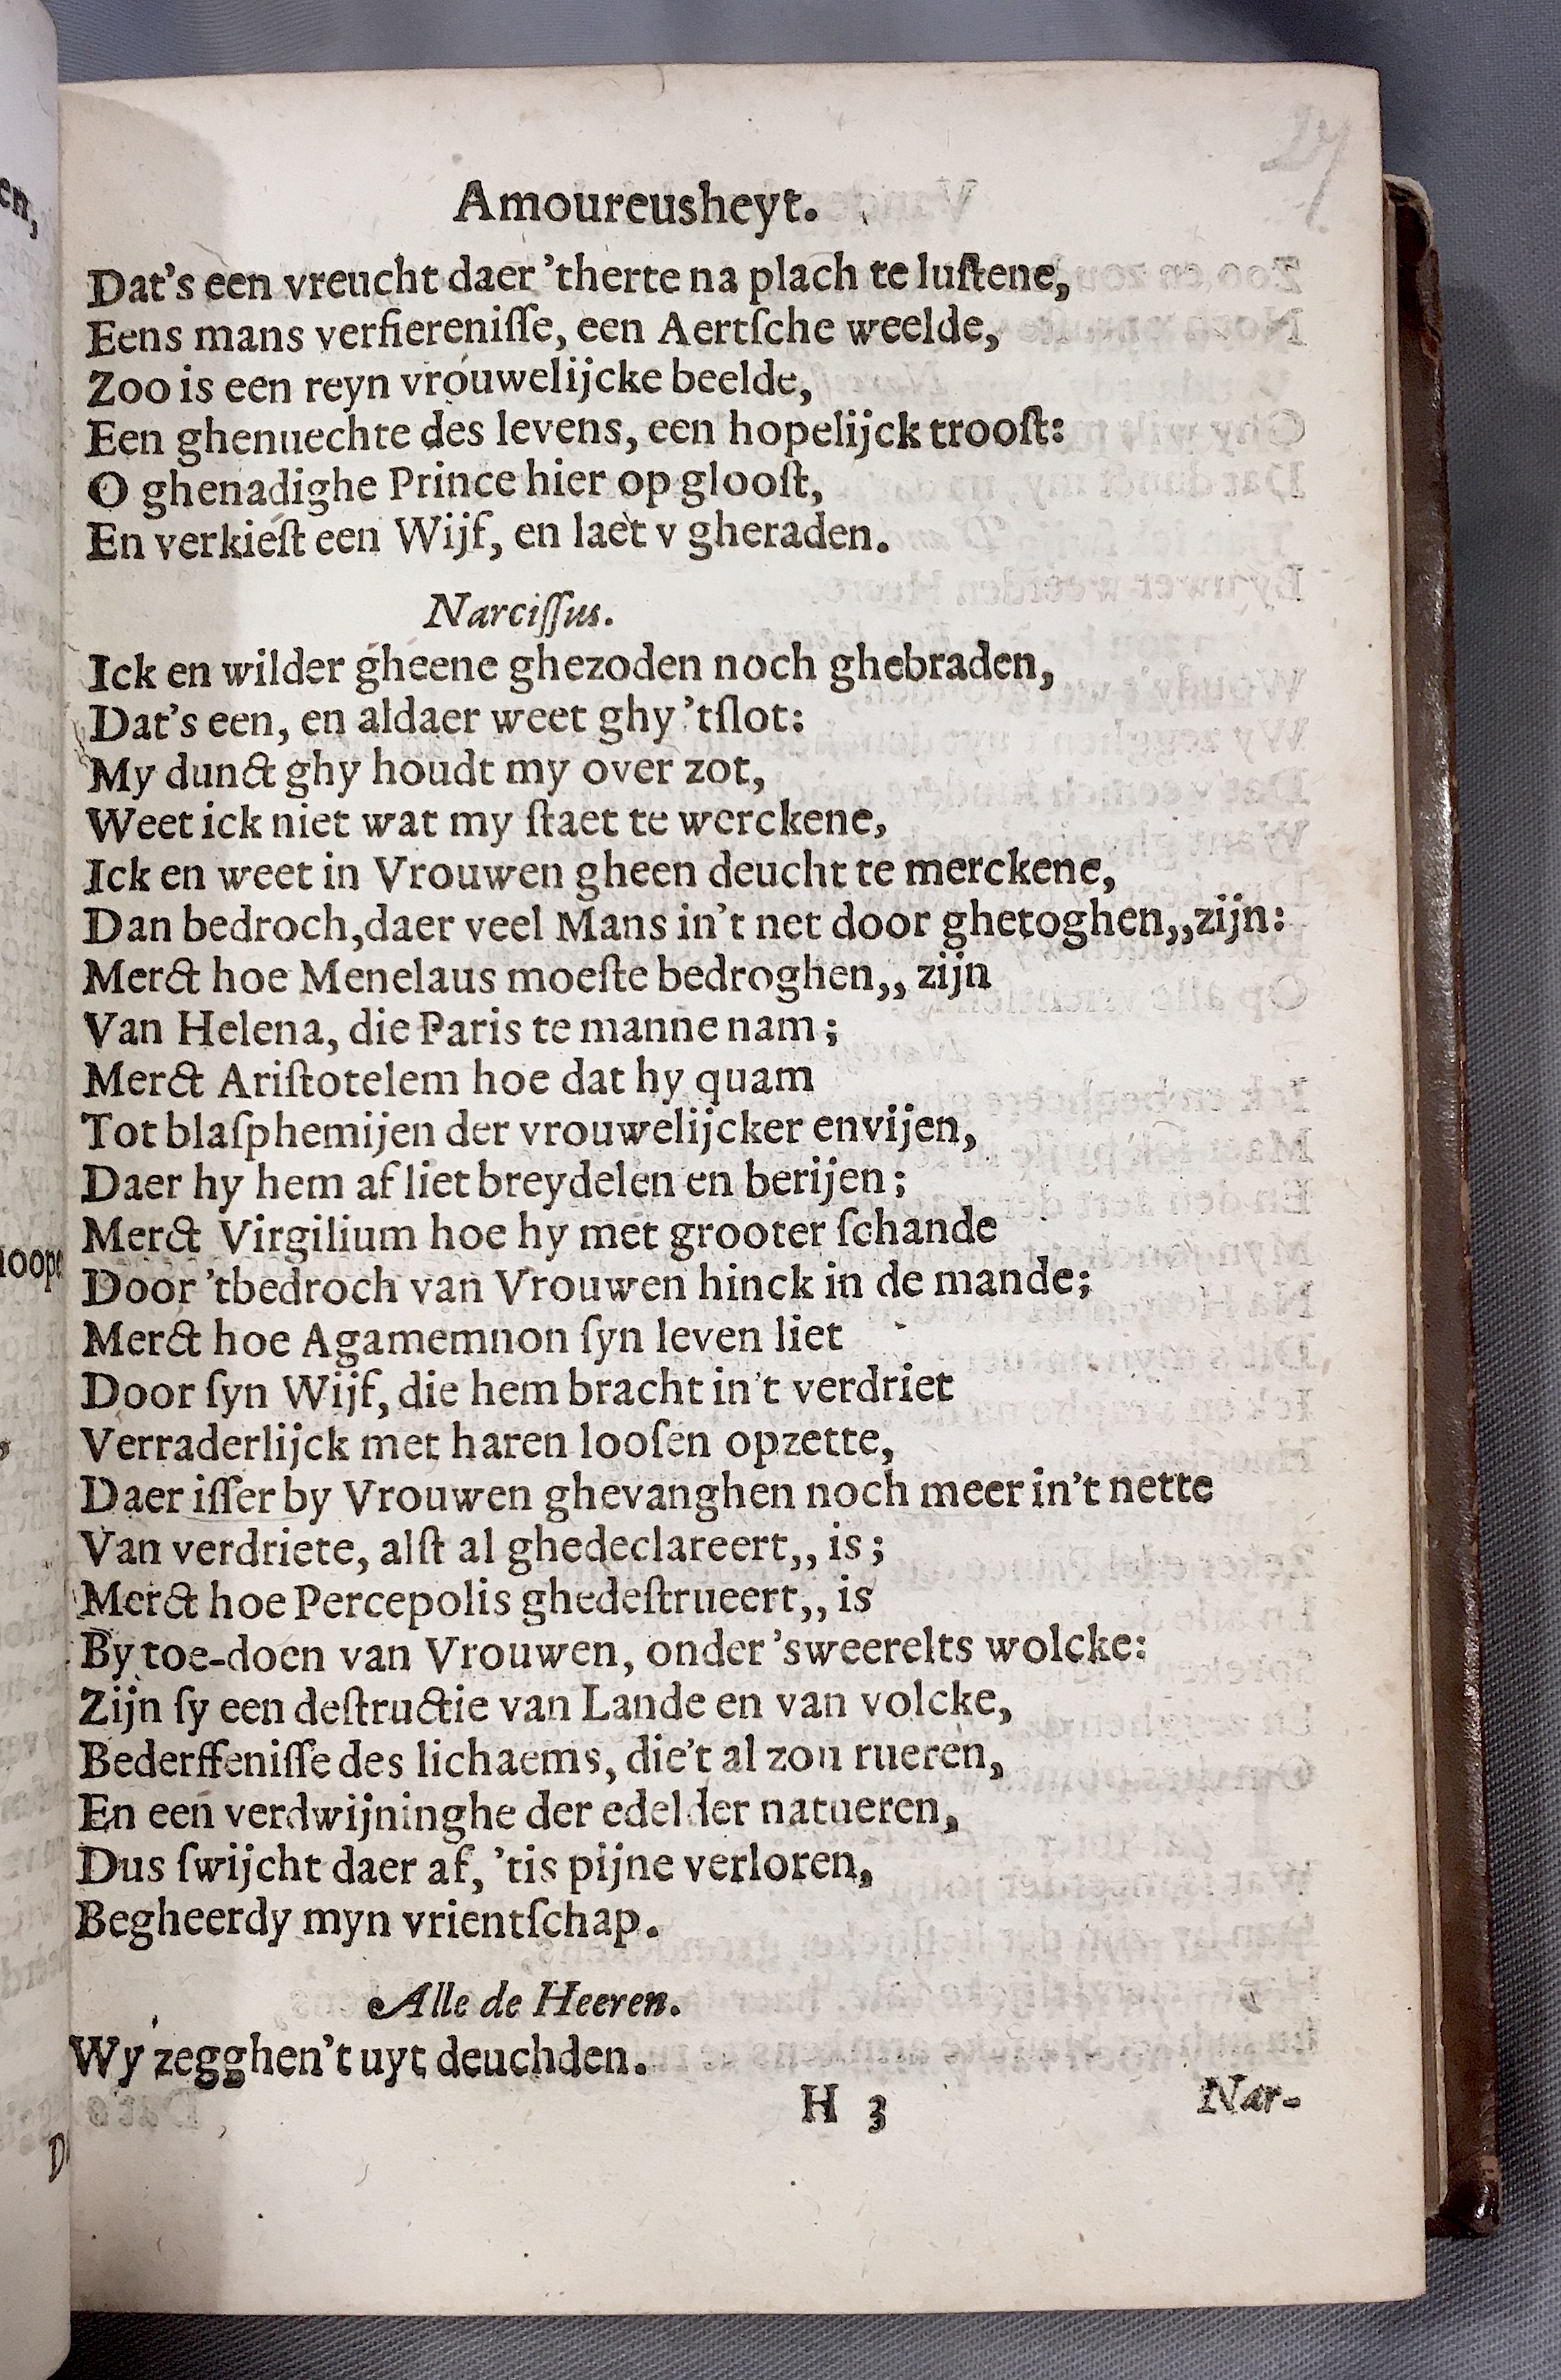 Amoureusheyt.
Dat's een vreucht daer 'therte na plach te luſtene,
Eens mans verfiereniſſe, een Aertſche weelde,
Zoo is een reyn vrouwelijcke beelde,
Een ghenuechte des levens, een hopelijck trooſt:
O ghenadighe Prince hier op glooſt,
En verkieſt een Wijf, en laet v gheraden.
Narciſſus.
Ick en wilder gheene ghezoden noch ghebraden,
Dat's een, en aldaer weet ghy 'tſlot:
My dunct ghy houdt my over zot,
Weet ick niet wat my ſtaet te werckene,
Ick en weet in Vrouwen gheen deucht te merckene,
Dan bedroch, daer veel Mans in't net door ghetoghen,, zijn:
Merct hoe Menelaus moeſte bedroghen,, zijn
Van Helena, die Paris te manne nam;
Merct Ariſtotelem hoe dat hy quam
Tot blaſphemijen der vrouwelijcker envijen,
Daer hy hem af liet breydelen en berijen;
Merct Virgilium hoe hy met grooter ſchande
Door 'tbedroch van Vrouwen hinck in de mande;
Merct hoe Agamemnon ſyn leven liet
Door ſyn Wijf, die hem bracht in't verdriet
Verraderlijck met haren looſen opzette,
Daer iſſer by Vrouwen ghevanghen noch meer in't nette
Van verdriete, alſt al ghedeclareert,, is;
Merct hoe Percepolis ghedeſtrueert,, is
By toe-doen van Vrouwen, onder 'sweerelts wolcke:
Zijn ſy een deſtructie van Lande en van volcke,
Bederffeniſſe des lichaems, die't al zou rueren,
En een verdwijninghe der edelder natueren,
Dus ſwijcht daer af, 'tis pijne verloren,
Begheerdy myn vrientſchap.
Alle de Heeren.
Wy zegghen't uyt deuchden.
H 3
Nar-